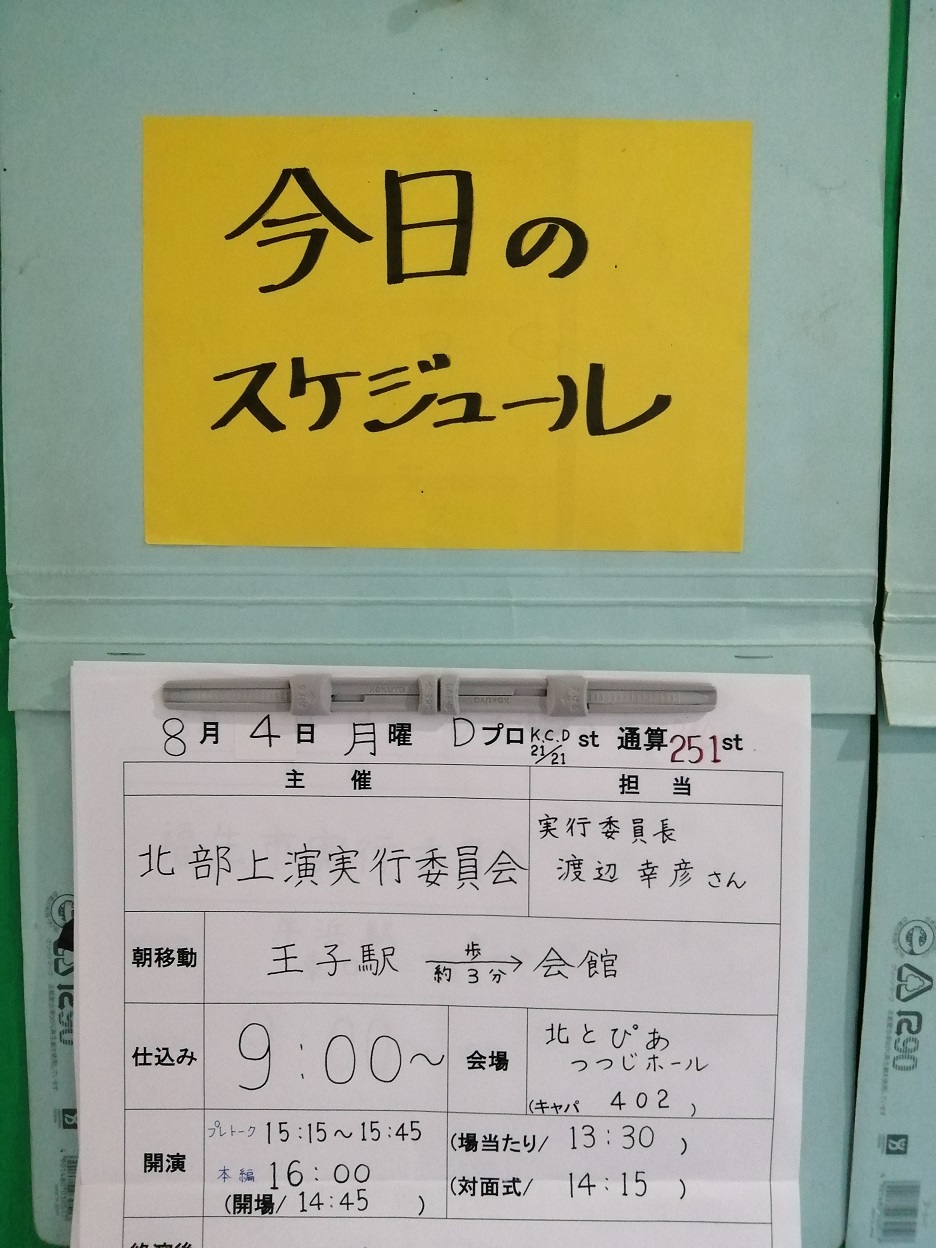 今日の
スケジュール
8月4日月曜 Dプロ K.C.D 21/21 st 通算251st
主催 担当
北部上演実行委員会
実行委員長
渡辺幸彦さん
朝移動 王子駅 歩 約3分 会館
仕込み 9:00～ 会場 北とぴあ
つつじホール
(キャパ 402 )
開演 プレトーク 15:15～15:45 (場当たり/ 13:30 )
本編 16:00
(開場/ 14:45 ) (対面式/ 14:15 )
R90
R90